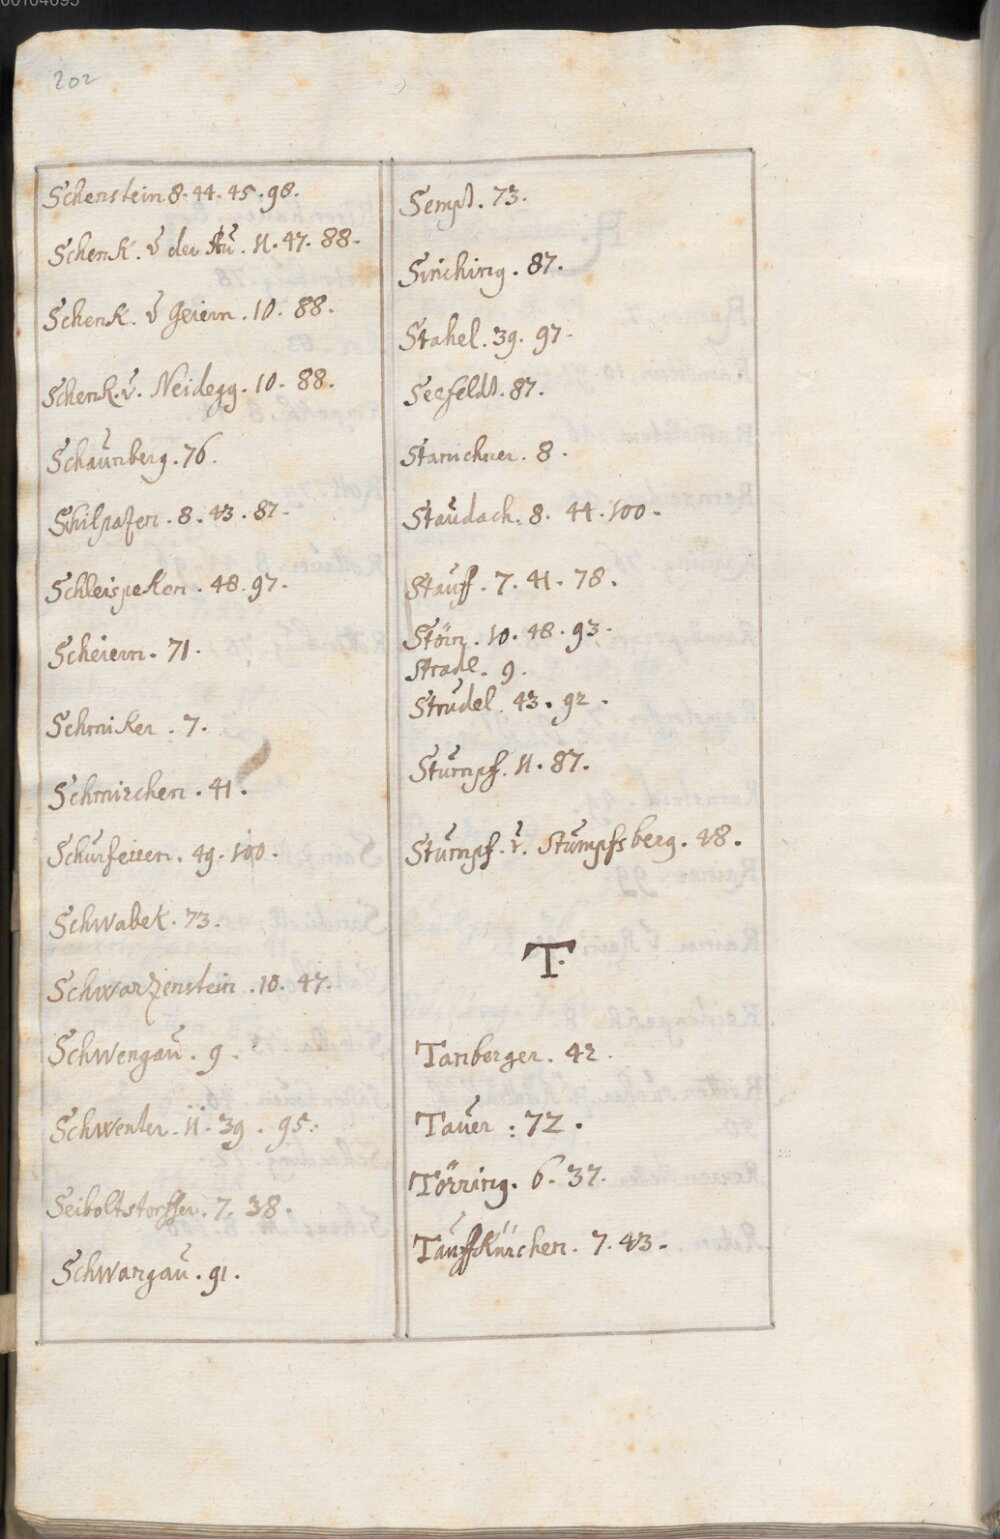 202
Schenstein 8. 44. 45. 98.
Schenk. v der Au. 11. 47. 88.
Schenk. v Geiern. 10. 88.
Schenk. v. Neidegg. 10. 88.
Schaunberg. 76.
Schilpafen. 8. 43. 87.
Schleispeken. 48. 97.
Scheiern. 71.
Schmiker. 7.
Schmirchen. 41.
Schurfeien. 49. 100.
Schwabek. 73.
Schwarzenstein. 10. 47.
Schwengau. 9.
Schwenter. 11. 39. 95.
Seiboltstorffer. 7. 38.
Schwangau. 91.
Sempt. 73.
Sinching. 87.
Stahel. 39. 97.
Seefeldt. 87.
Starnchner. 8.
Staudach. 8. 44. 100.
Stauff. 7. 41. 78.
Störn. 10. 48. 93.
Stradl. 9.
Strudel. 43. 92.
Stumpf. 11. 87.
Stumpf. v. Stumpfsberg. 48.
T.
Tanberger. 42.
Tauer: 72.
Törring. 6. 37.
Tauffkürchen. 7. 43.